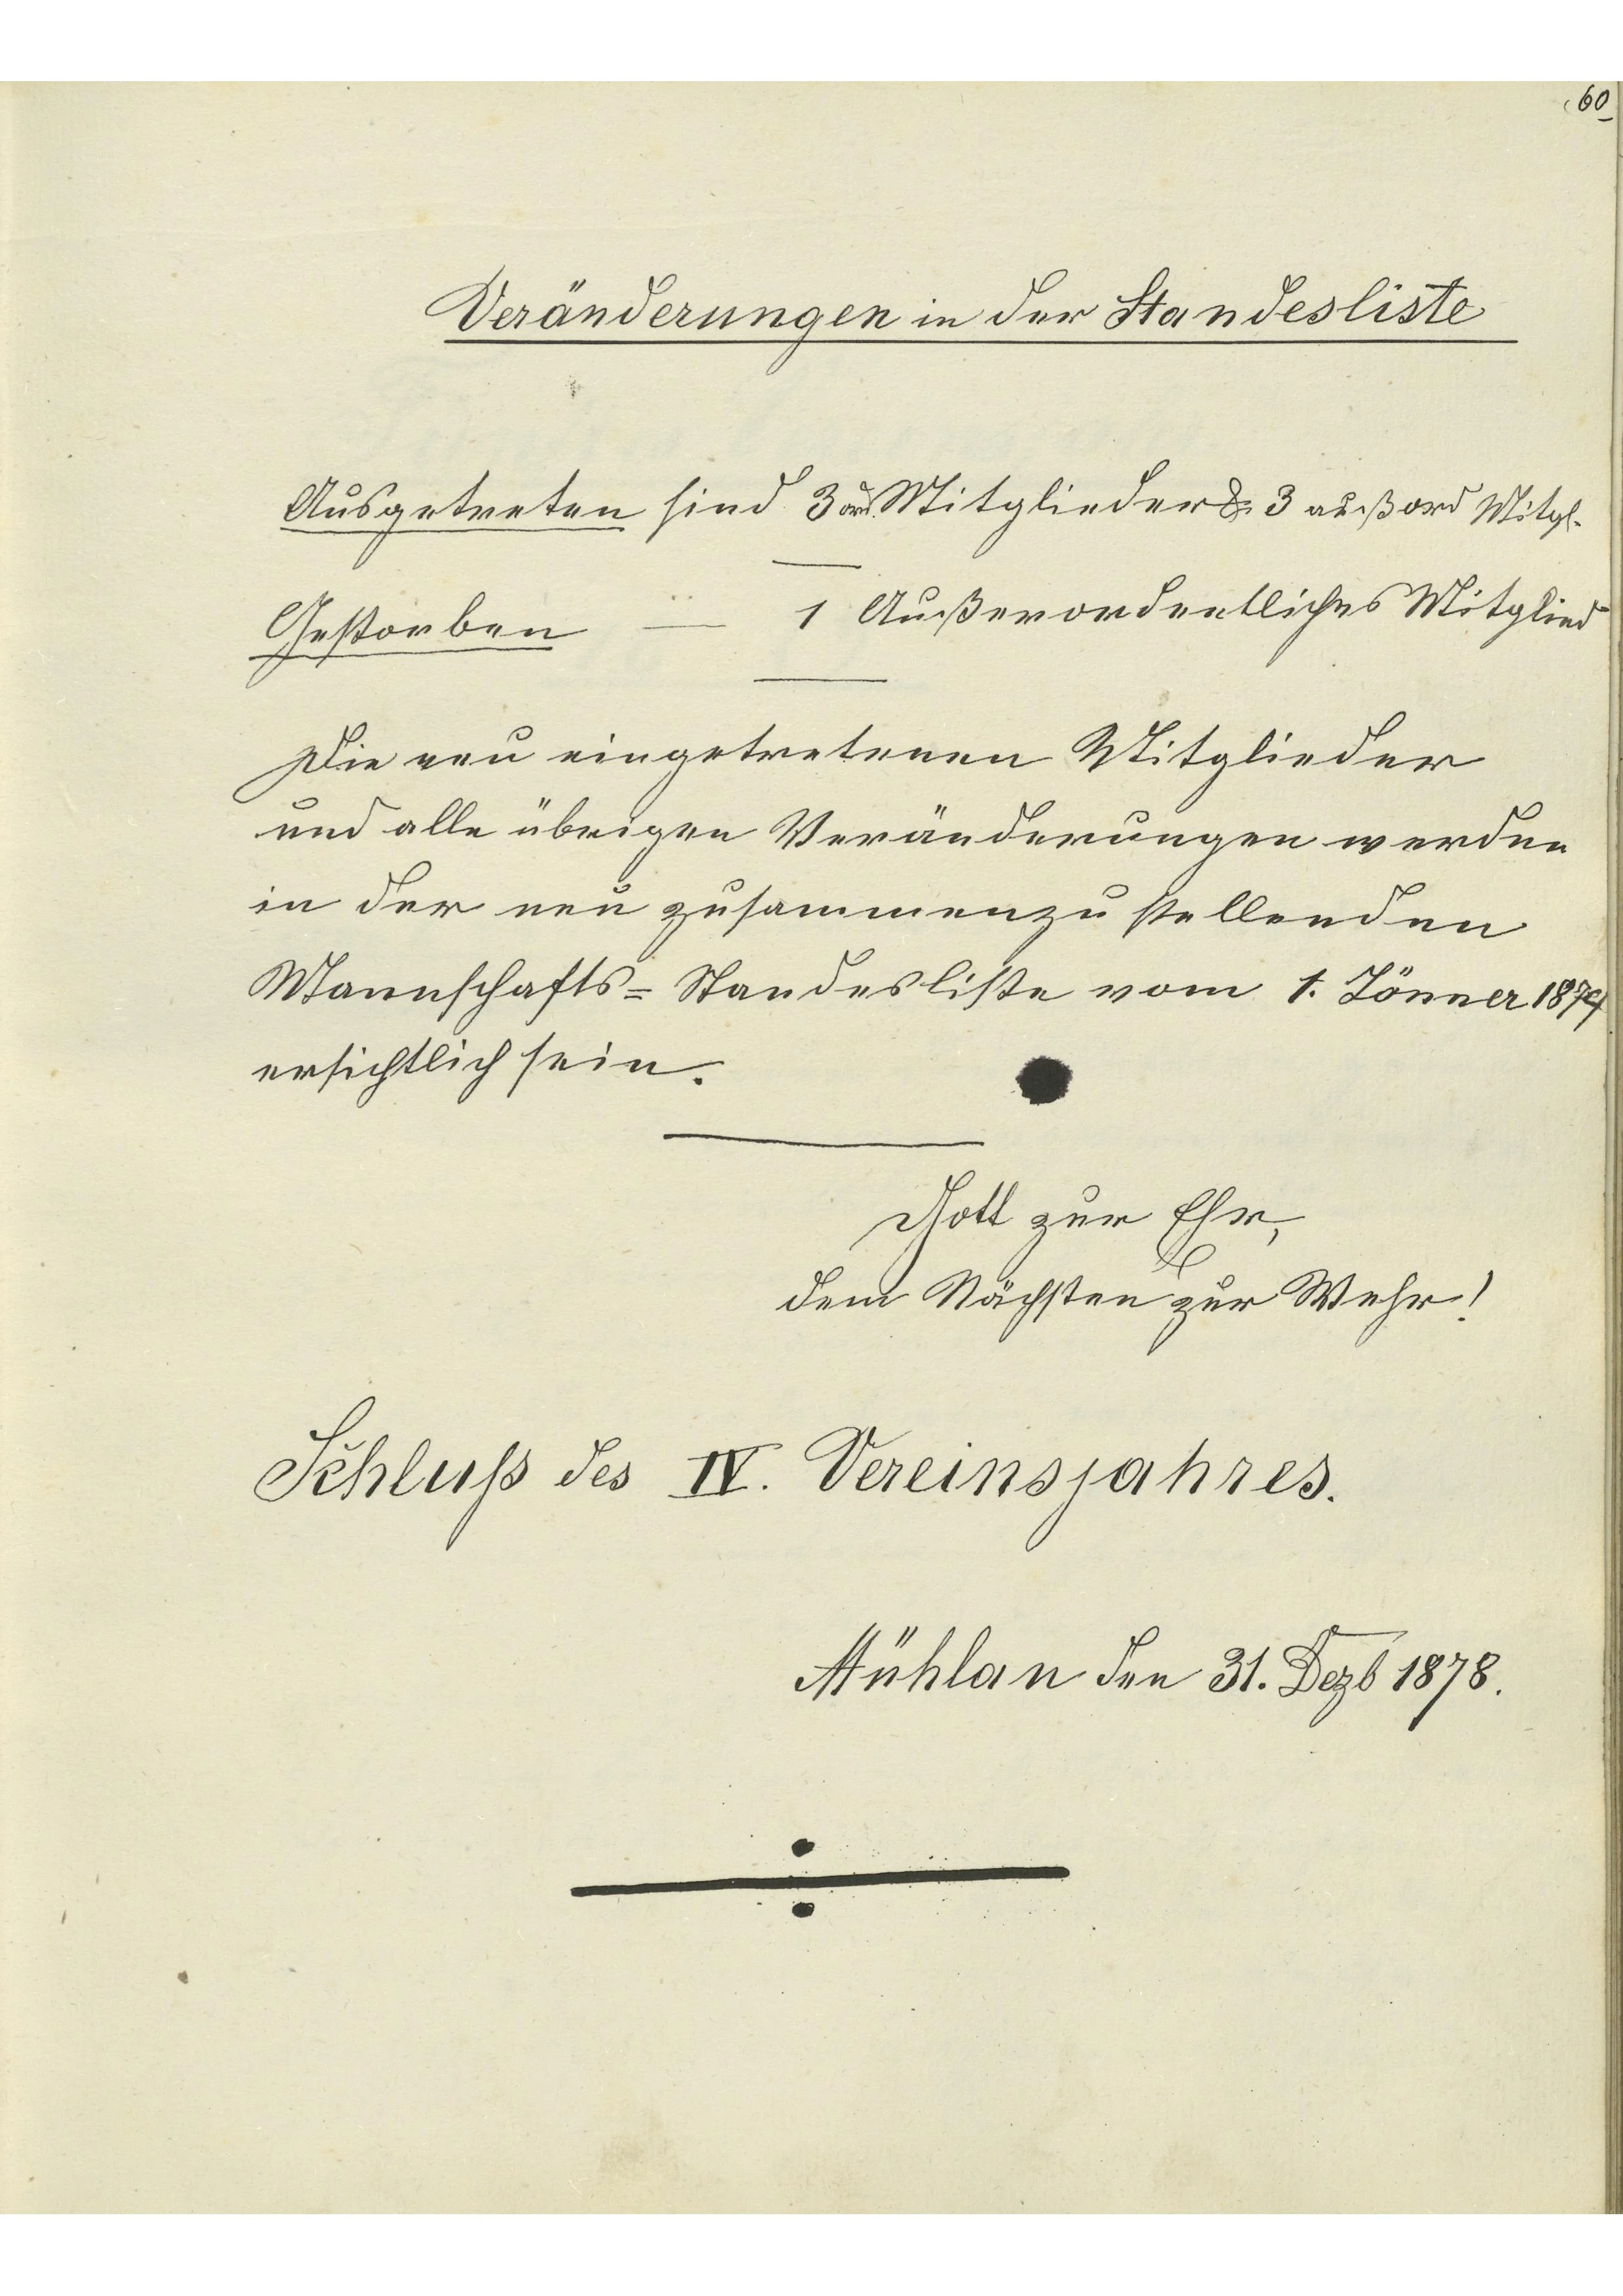 60
Veränderungen in der Standesliste
Ausgetreten sind 3 ord. Mitglieder & 3 außord Mitgl.
Gestorben — 1 Außerordentliches Mitglied
Die neu eingetretenen Mitglieder
und alle übrigen Veränderungen werden
in der neu zusammenzustellenden
Mannschafts= Standesliste vom 1. Jänner 1879
ersichtlich sein.
Gott zur Ehr,
dem Nächsten zur Wehr!
Schluß des IV. Vereinsjahres.
Mühlau den 31. Dezb 1878.